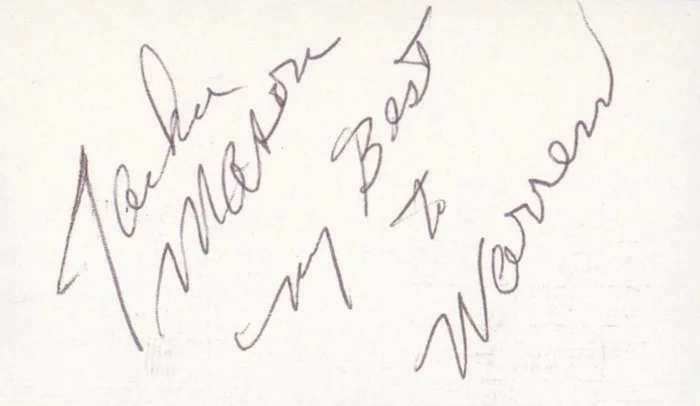 Jackie
Mason
my Best
to
Warren